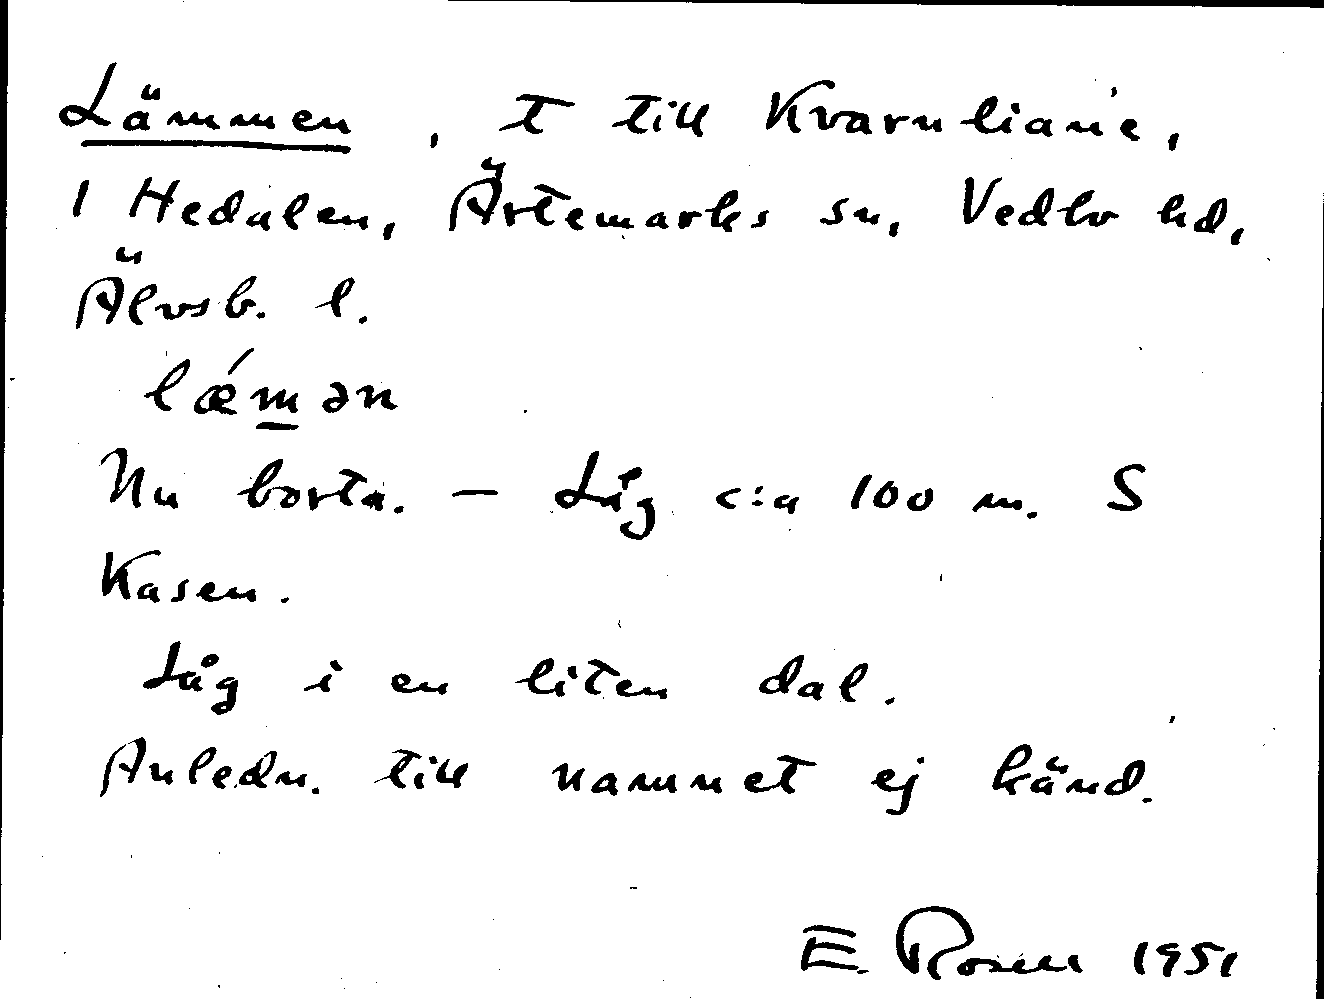 Lämmen, t till Kvarnliane,
1 Hedalen, Ärtemarks sn, Vedbo hd,
Älvsb. l.
lǽmən
Nu borta. – Låg c:a 100 m. S
Kasen.
Låg i en liten dal.
Anledn. till namnet ej känd.
E. Rosell 1951